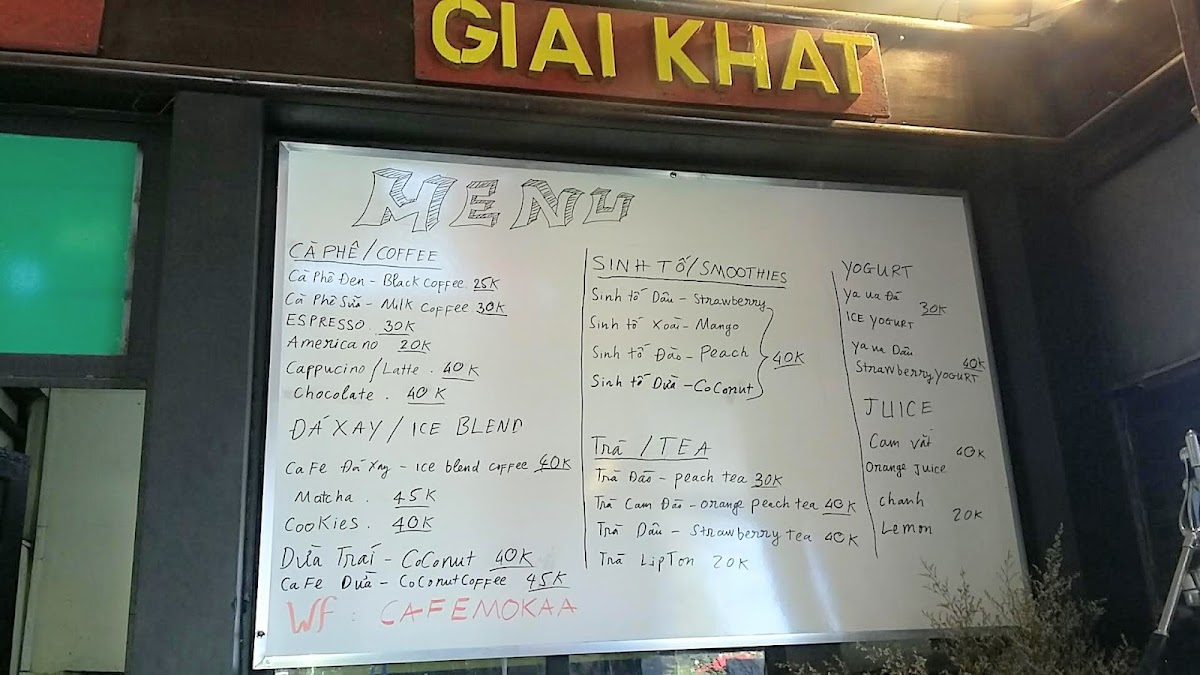 GIAI KHAT
MENU
CÀ PHÊ / COFFEE
Cà Phê Đen - Black Coffee 25K
Cà Phê Sữa - Milk Coffee 30K
ESPRESSO 30K
Americano 20K
Cappucino / Latte . 40K
Chocolate . 40K
ĐÁ XAY / ICE BLEND
CaFe Đá Xay - ice blend coffee 40K
Matcha . 45K
Cookies . 40K
Dừa Trái - Coconut 40K
CaFe Dừa - Coconut Coffee 45K
Wf : CAFEMOKAA
SINH TỐ / SMOOTHIES
Sinh tố Dâu - Strawberry
Sinh tố Xoài - Mango
Sinh tố Đào - Peach
Sinh tố Dừa - Coconut
40K
Trà / TEA
Trà Đào - peach tea 30K
Trà Cam Đào - orange peach tea 40K
Trà Dâu - Strawberry tea 40K
Trà LipTon 20K
YOGURT
Ya ua Đá
30K
ICE YOGURT
Ya ua Dâu
40K
Strawberry YOGURT
JUICE
Cam vắt
40K
Orange Juice
chanh
20K
Lemon